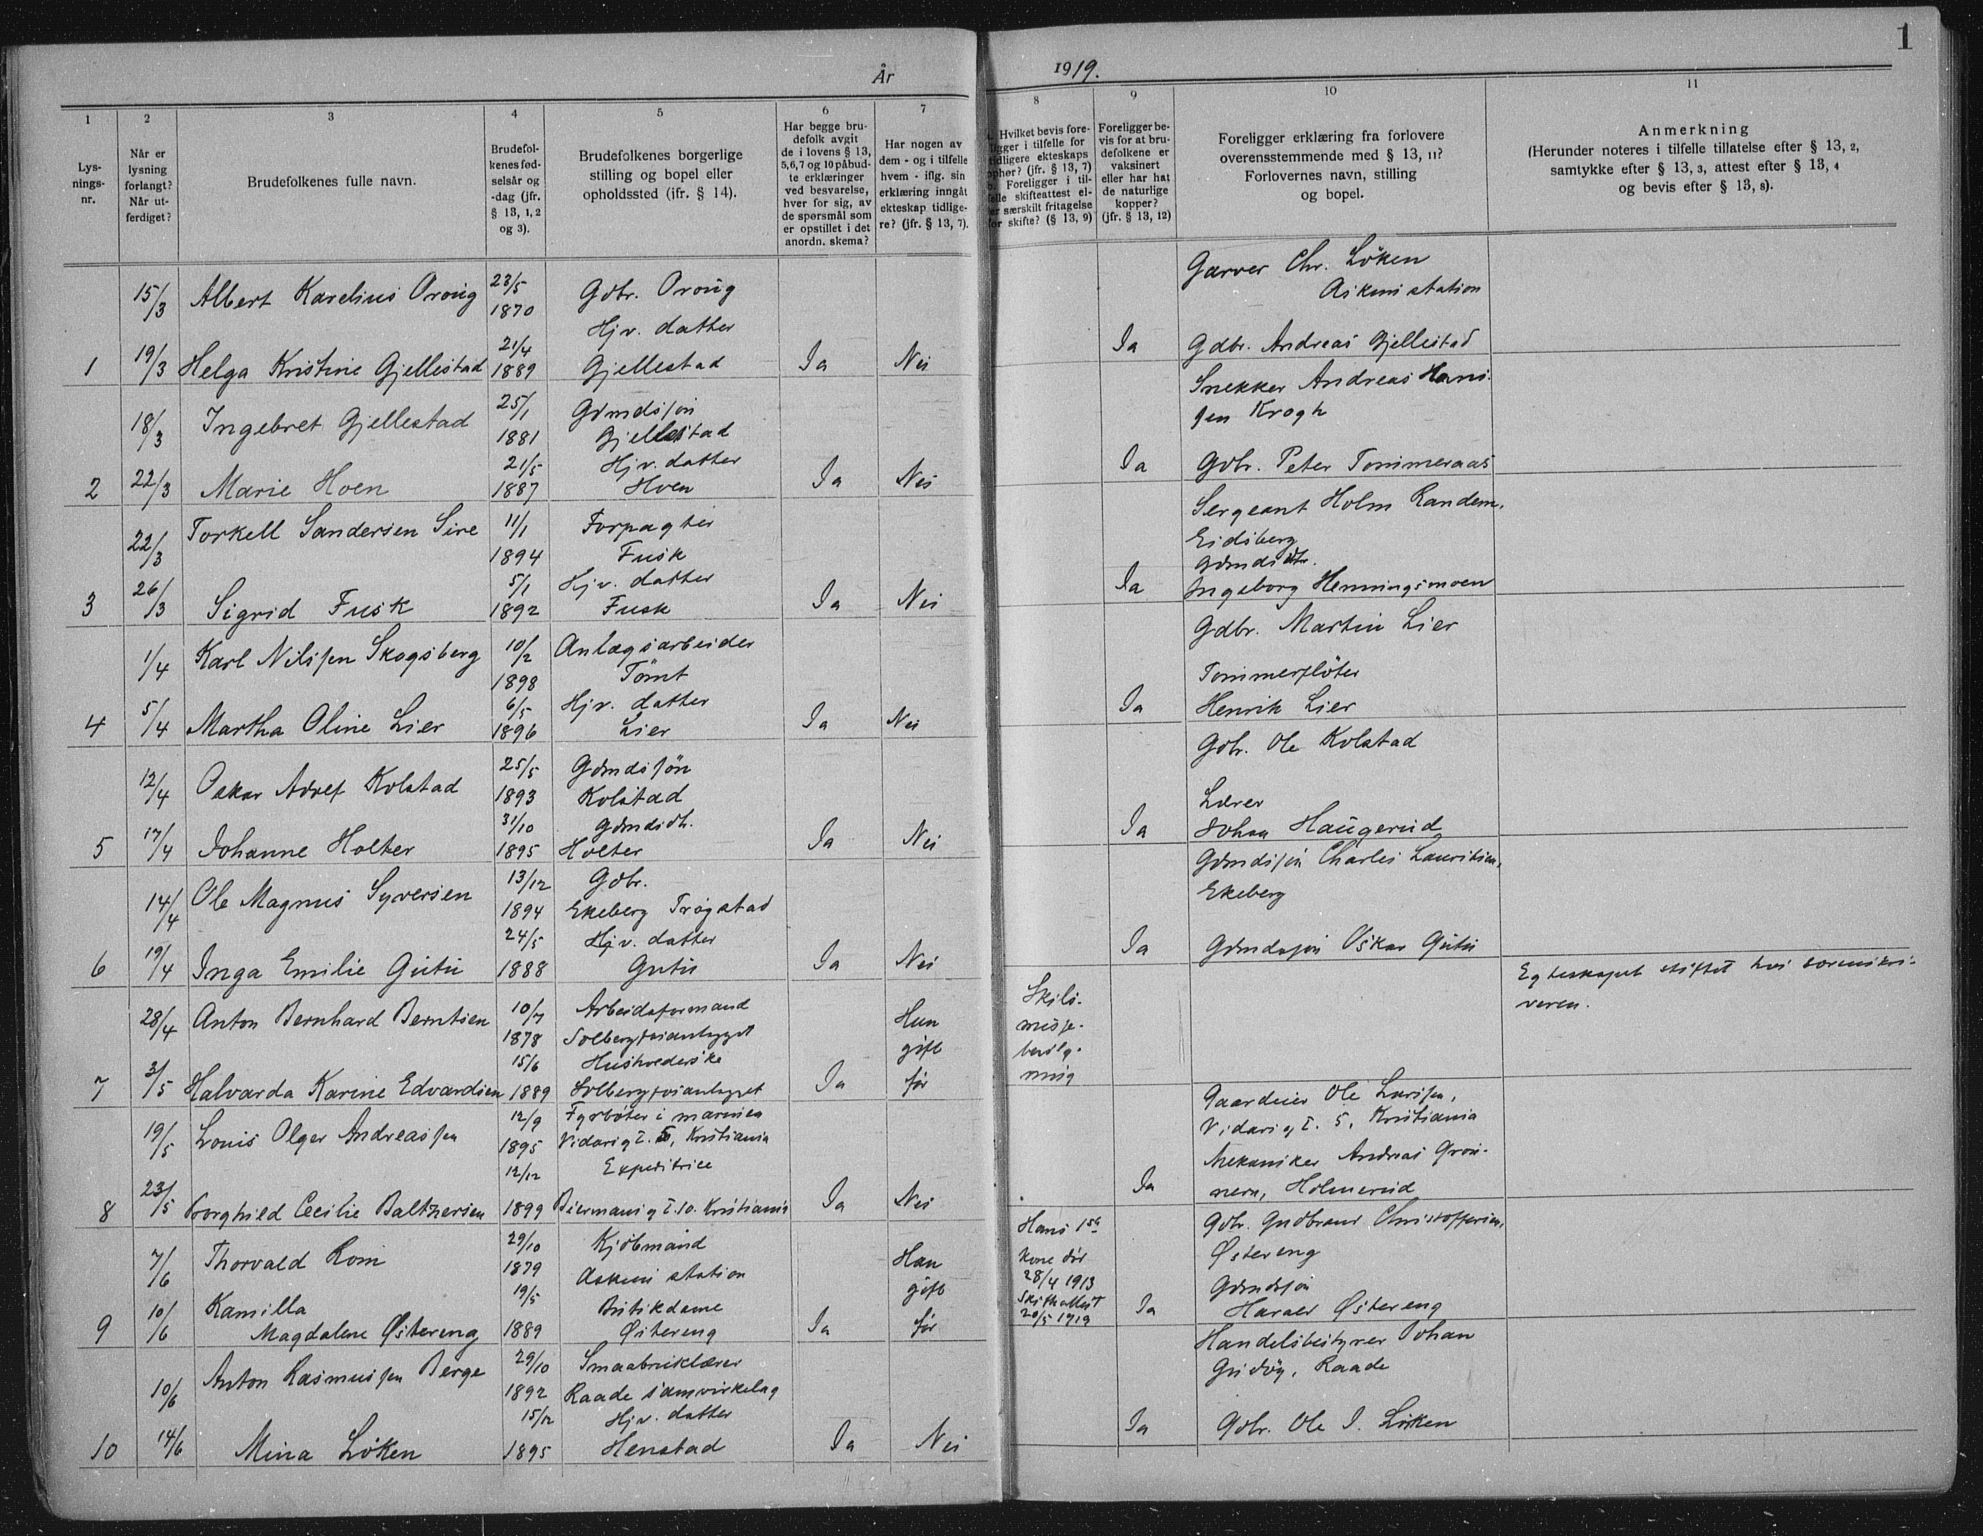 1
År 1919.
1 2 3 4 5 6 7 8 9 10 11
Lys-
nings-
nr.
Når er
lysning
forlangt?
Når ut-
ferdiget?
Brudefolkenes fulle navn.
Brudefol-
kenes fød-
selsår og
-dag (jfr.
§ 13, 1, 2
og 3).
Brudefolkenes borgerlige
stilling og bopel eller
opholdssted (jfr. § 14).
Har begge bru-
defolk avgit
de i lovens § 13,
5, 6, 7 og 10 påbud-
te erklæringer
ved besvarelse,
hver for sig, av
de spørsmål som
er opstillet i det
anordn. skema?
Har nogen av
dem - og i tilfelle
hvem - iflg. sin
erklæring inngåt
ekteskap tidlige-
re? (jfr. § 13, 7).
Hvilket bevis fore-
ligger i tilfelle for
tidligere ekteskaps
ophør? (jfr. § 13, 7)
b. Foreligger i til-
felle skifteattest el-
ler særskilt fritagelse
for skifte? (§ 13, 9)
Foreligger be-
vis for at bru-
defolkene er
vaksinert
eller har hat
de naturlige
kopper?
(jfr. § 13, 12)
Foreligger erklæring fra forlovere
overensstemmende med § 13, 11?
Forlovernes navn, stilling
og bopel.
Anmerkning
(Herunder noteres i tilfelle tillatelse efter § 13, 2,
samtykke efter § 13, 3, attest efter § 13, 4
og bevis efter § 13, 8).
15/3 Albert Karelius Oraug 23/5 1870 Gdbr. Oraug
Garver Chr. Løken
Askim station
1 19/3 Helga Kristine Gjellestad 21/4 1889 Hjv. datter Gjellestad Ja Nei
Ja Gdbr. Andreas Gjellestad
18/3 Ingebret Gjellestad 25/1 1881 Gdmdssøn Gjellestad
Snekker Andreas Hans-
sen Krogh
2 22/3 Marie Hoen 21/5 1887 Hjv. datter Hoen Ja Nei
Ja Gdbr. Peter Tømmeraas
22/3 Torkell Sandersen Sire 11/1 1894 Forpagter Fusk
Sergeant Holm Randem,
Eidsberg
3 26/3 Sigrid Fusk 5/1 1892 Hjv. datter Fusk Ja Nei
Ja Gdmdsdtr.
Ingeborg Henningsmoen
1/4 Karl Nilssen Skogsberg 10/2 1898 Anlægsarbeider Tømt
Gdbr. Martin Lier
4 5/4 Martha Oline Lier 6/5 1896 Hjv. datter Lier Ja Nei
Ja Tømmerfløter
Henrik Lier
12/4 Oskar Adolf Kolstad 25/5 1893 Gdmdssøn Kolstad
Gdbr. Ole Kolstad
5 17/4 Johanne Holter 31/10 1895 Gdmdsdtr. Holter Ja Nei
Ja Lærer
Johan Haugerud
14/4 Ole Magnus Syversen 13/12 1894 Gdbr. Ekeberg Trøgstad
Gdmdssøn Charles Lauritsen,
Ekeberg
6 19/4 Inga Emilie Gutu 24/5 1888 Hjv. datter Gutu Ja Nei
Ja Gdmdssøn Oskar Gutu
28/4 Anton Bernhard Berntsen 10/7 1878 Arbeidsformand Solbergfosanlægget
Egteskapet stiftet hos sorenskri-
veren.
7 3/5 Halvarda Karine Edvardsen 15/6 1889 Husholderske Solbergfosanlæget Ja
Hun
gift
før
Skils-
misse-
bevilg-
ning
19/5 Louis Olger Andreassen 12/9 1895 Fyrbøter i marinen
Vidarsgt. 5, Kristiania
Gaardeier Ole Larssen,
Vidarsgt. 5, Kristiania
8 23/5 Borghild Cecilie Baltzersen 12/12 1899 Expeditrice
Biermansgt. 10. Kristiania Ja Nei
Ja Mekaniker Andreas Grøn-
nern, Holmerud
7/6 Thorvald Rom 29/10 1879 Kjøbmand
Askim station
Gdbr. Gudbrand Christoffersen,
Østereng
9 10/6 Kamilla
Magdalene Østereng 19/5 1889 Butikdame
Østereng Ja
Han
gift
før
Hans 1ste
kone dør
28/4 1913
Skifteattest
20/5 1919
Ja Gdmdssøn
Harald Østereng
10/6 Anton Rasmussen Berge 29/10 1892 Smaabruklærer
Raade samvirkelag
Handelsbestyrer Johan
Gudøy, Raade
10 14/6 Mina Løken 15/12 1895 Hjv. datter
Henstad Ja Nei
Ja Gdbr. Ole I. Løken